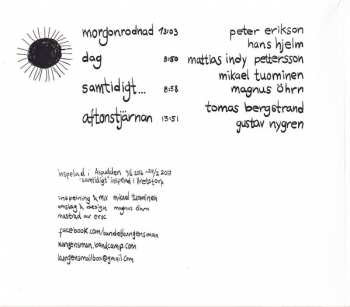 morgonrodnad 13:03
dag 8:50
samtidigt... 8:58
aftonstjärnan 13:51
peter erikson
hans hjelm
mattias indy pettersson
mikael tuominen
magnus öhrn
tomas bergstrand
gustav nygren
inspelad i Aspudden
"samtidigt" inspelad i
inspelning & mix mikael tuominen
omslag & design magnus öhrn
mastrad av
facebook.com/bandetkungensman
kungensman.bandcamp.com
kungensmailbox@gmail.com